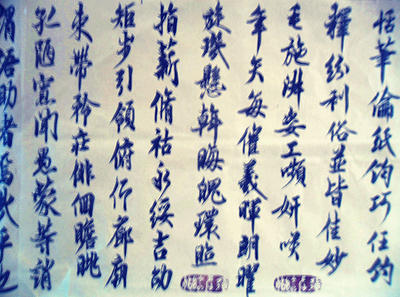 恬筆倫紙鈞巧任釣
釋紛利俗並皆佳妙
毛施淑姿工嚬妍笑
年矢每催羲暉朗曜
旋璣懸斡晦魄環照
指薪脩祜永綏吉劭
矩步引領俯仰廊廟
束帶矜莊徘徊瞻眺
孤陋寡聞愚蒙等誚
謂語助者焉哉乎也